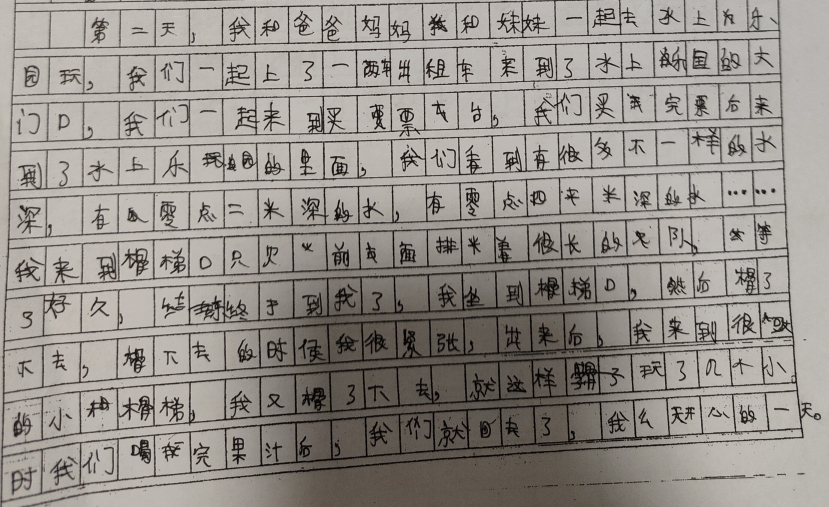 第二天，我和爸爸妈妈和妹妹一起去水上乐、
园玩，我们一起上了一辆出租车来到了水上乐园的大
门口，我们一起来到买票台，我们买完票后来
到了水上乐园的里面，我们看到有很多不一样的水
深，有零点二米深的水，有零点四米深的水……
我来到榾梯口只见前面排着很长的队，等
了好久，终于到我了，我坐到榾梯口，然后榾了
下去，榾下去的时侯我很紧张，出来后，我来到很
的小榾梯，我又榾了下去，就这样玩了几个小
时我们喝完果汁后，我们就回去了，我么开心的一天。